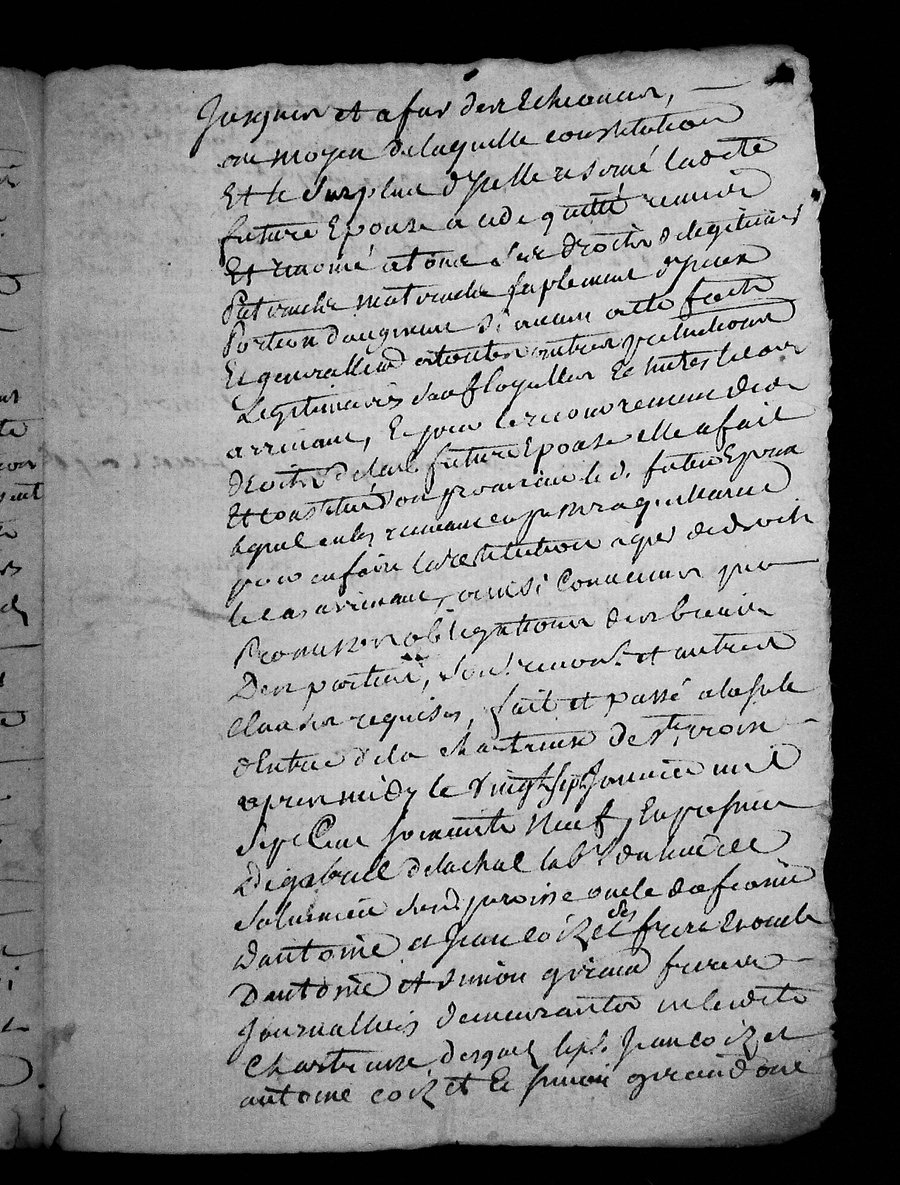 Jusques et a fur des Echeances,
au moyen de laquelle constitution
Et le Surplus d'Icelle reservé ladite
future Epouse a cedé quitté remis
Et renoncé a tous ses droits de legitimes
Paternelle maternelle suplement d'Iceux
Portion d'augment Si aucun cette faite
Et generallem a toutes autres pretentions
Legitimaires sauf loyalles Echutes le cas
arrivant, Et pour le recouvrement des
droits de lad. future Epouse elle a fait
Et constitué son procureur le d. futur Epoux
lequel en les recevant en passera quittance
pour en faire la restitution a qui de droit
le cas arrivant, ainsi convenus par
Promesses obligations des biens
Des parties, soum. renont. et autres
Clauses requises, fait et passé a la sale
d'Entrée de la chartreuse de Ste. Croix
apres midy le vingt sept Janvier mil
Sept Cent soixante Neuf, En presence
De gabriel delachal lab.r du lieu de
dud. paroisse oncle de
D'antoine et Jean Coizet des freres Et oncle
D'antoine et Simon giraud freres
Journalliers demeurants en ladite
Chartreuse desquels led. Jean Coizet
antoine coiz et Et simon giraud ont